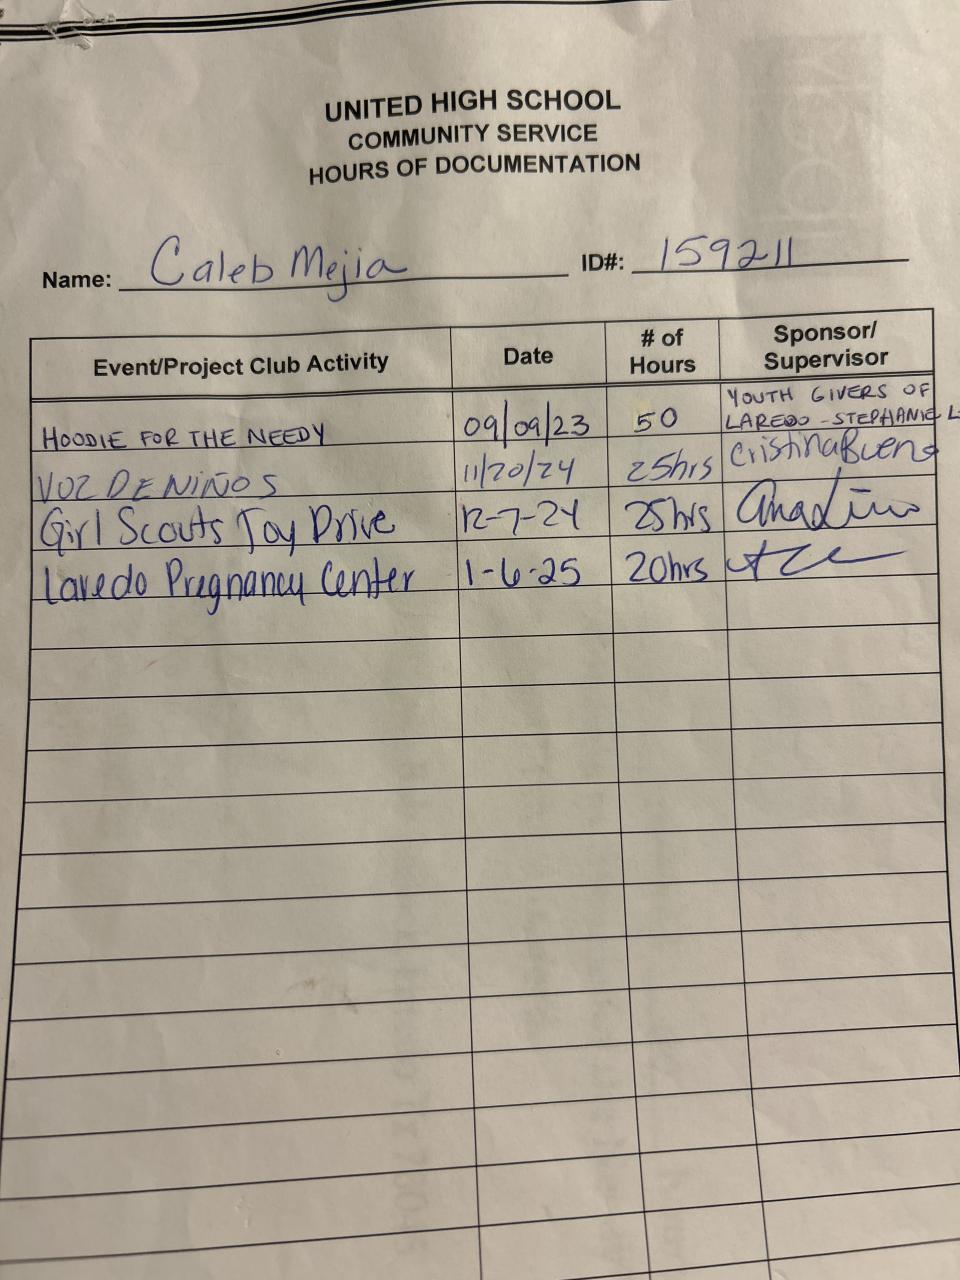 UNITED HIGH SCHOOL
COMMUNITY SERVICE
HOURS OF DOCUMENTATION
Name: Caleb Mejia ID#: 159211
Event/Project Club Activity Date # of Hours Sponsor/Supervisor
HOODIE FOR THE NEEDY 09/09/23 50 YOUTH GIVERS OF LAREDO - STEPHANIE L
VOZ DE NIÑOS 11/20/24 25hrs Cristina Bueno
Girl Scouts Toy Drive 12-7-24 25hrs
Laredo Pregnancy Center 1-6-25 20hrs